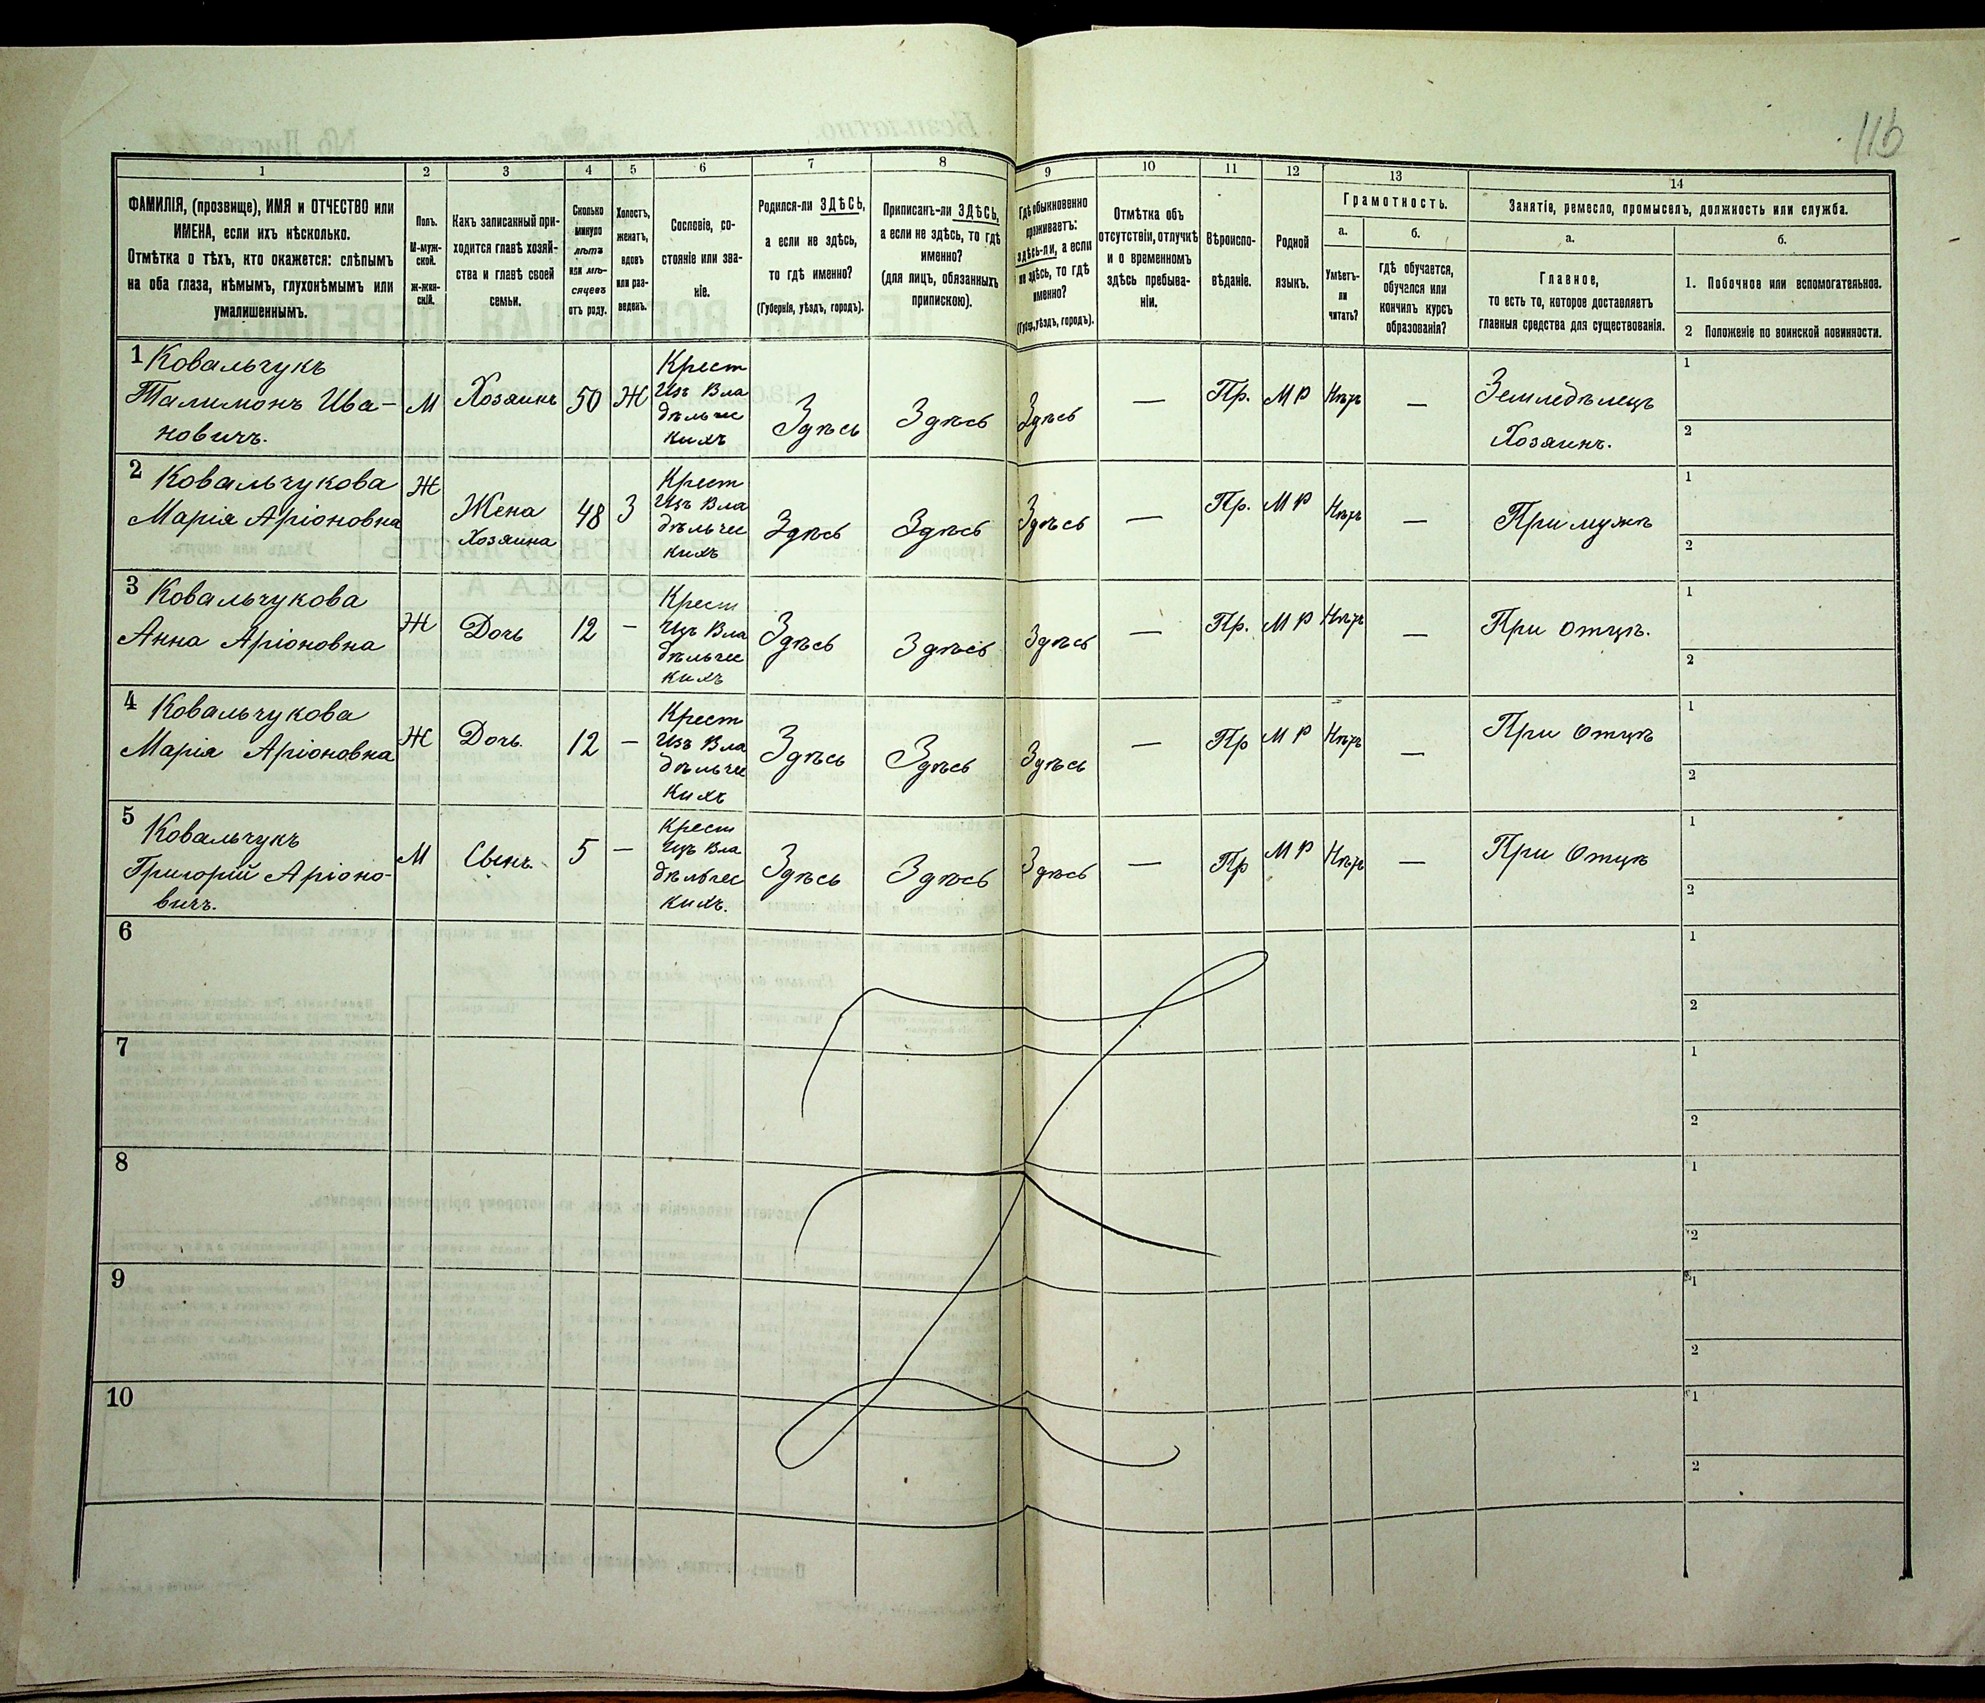 116
1 2 3 4 5 6 7 8 9 10 11 12 13 14
ФАМИЛІЯ, (прозвище), ИМЯ и ОТЧЕСТВО или
ИМЕНА, если ихъ нѣсколько.
Отмѣтка о тѣхъ, кто окажется: слѣпымъ
на оба глаза, нѣмымъ, глухонѣмымъ или
умалишеннымъ.
Полъ.
М-муж-
ской.
Ж-жен-
скій.
Какъ записанный при-
ходится главѣ хозяй-
ства и главѣ своей
семьи.
Сколько
минуло
лѣтъ
или мѣ-
сяцевъ
отъ роду.
Холостъ,
женатъ,
вдовъ
или раз-
веденъ.
Сословіе, со-
стояніе или зва-
ніе.
Родился-ли ЗДѢСЬ,
а если не здѣсь,
то гдѣ именно?
(Губернія, уѣздъ, городъ).
Приписанъ-ли ЗДѢСЬ,
а если не здѣсь, то гдѣ
именно?
(для лицъ, обязанныхъ
припискою).
Гдѣ обыкновенно
проживаетъ:
здѣсь-ли, а если
не здѣсь, то гдѣ
именно?
(Губер., уѣздъ, городъ).
Отмѣтка объ
отсутствіи, отлучкѣ
и о временномъ
здѣсь пребыва-
ніи.
Вѣроиспо-
вѣданіе.
Родной
языкъ.
Грамотность.
а.
Умѣетъ-
ли
читать?
б.
гдѣ обучается,
обучался или
кончилъ курсъ
образованія?
Занятіе, ремесло, промыселъ, должность или служба.
а.
Главное,
то есть то, которое доставляетъ
главныя средства для существованія.
б.
1. Побочное или вспомогательное.
2 Положеніе по воинской повинности.
1 Ковальчукъ
Талимонъ Ива-
новичъ.
М
Хозяинъ
50
Ж
Крест
Изъ Вла
дѣльчес
кихъ
Здѣсь
Здѣсь
Здѣсь
—
Пр.
М Р
Нѣтъ
—
Земледѣлецъ
Хозяинъ.
1
2
2 Ковальчукова
Марія Аріоновна
Ж
Жена
Хозяина
48
З
Крест
Изъ Вла
дѣльчес
кихъ
Здѣсь
Здѣсь
Здѣсь
—
Пр.
М Р
Нѣтъ
—
При мужѣ
1
2
3 Ковальчукова
Анна Аріоновна
Ж
Дочь
12
—
Крест
Изъ Вла
дѣльчес
кихъ
Здѣсь
Здѣсь
Здѣсь
—
Пр.
М Р
Нѣтъ
—
При отцѣ.
1
2
4 Ковальчукова
Марія Аріоновна
Ж
Дочь.
12
—
Крест
Изъ Вла
дѣльчес
кихъ
Здѣсь
Здѣсь
Здѣсь
—
Пр
М Р
Нѣтъ
—
При Отцѣ
1
2
5 Ковальчукъ
Григорій Аріоно-
вичъ.
М
Сынъ.
5
—
Крест
Изъ Вла
дѣльчес
кихъ.
Здѣсь
Здѣсь
Здѣсь
—
Пр
М Р
Нѣтъ
—
При Отцѣ
1
2
6
1
2
7
1
2
8
1
2
9
1
2
10
1
2